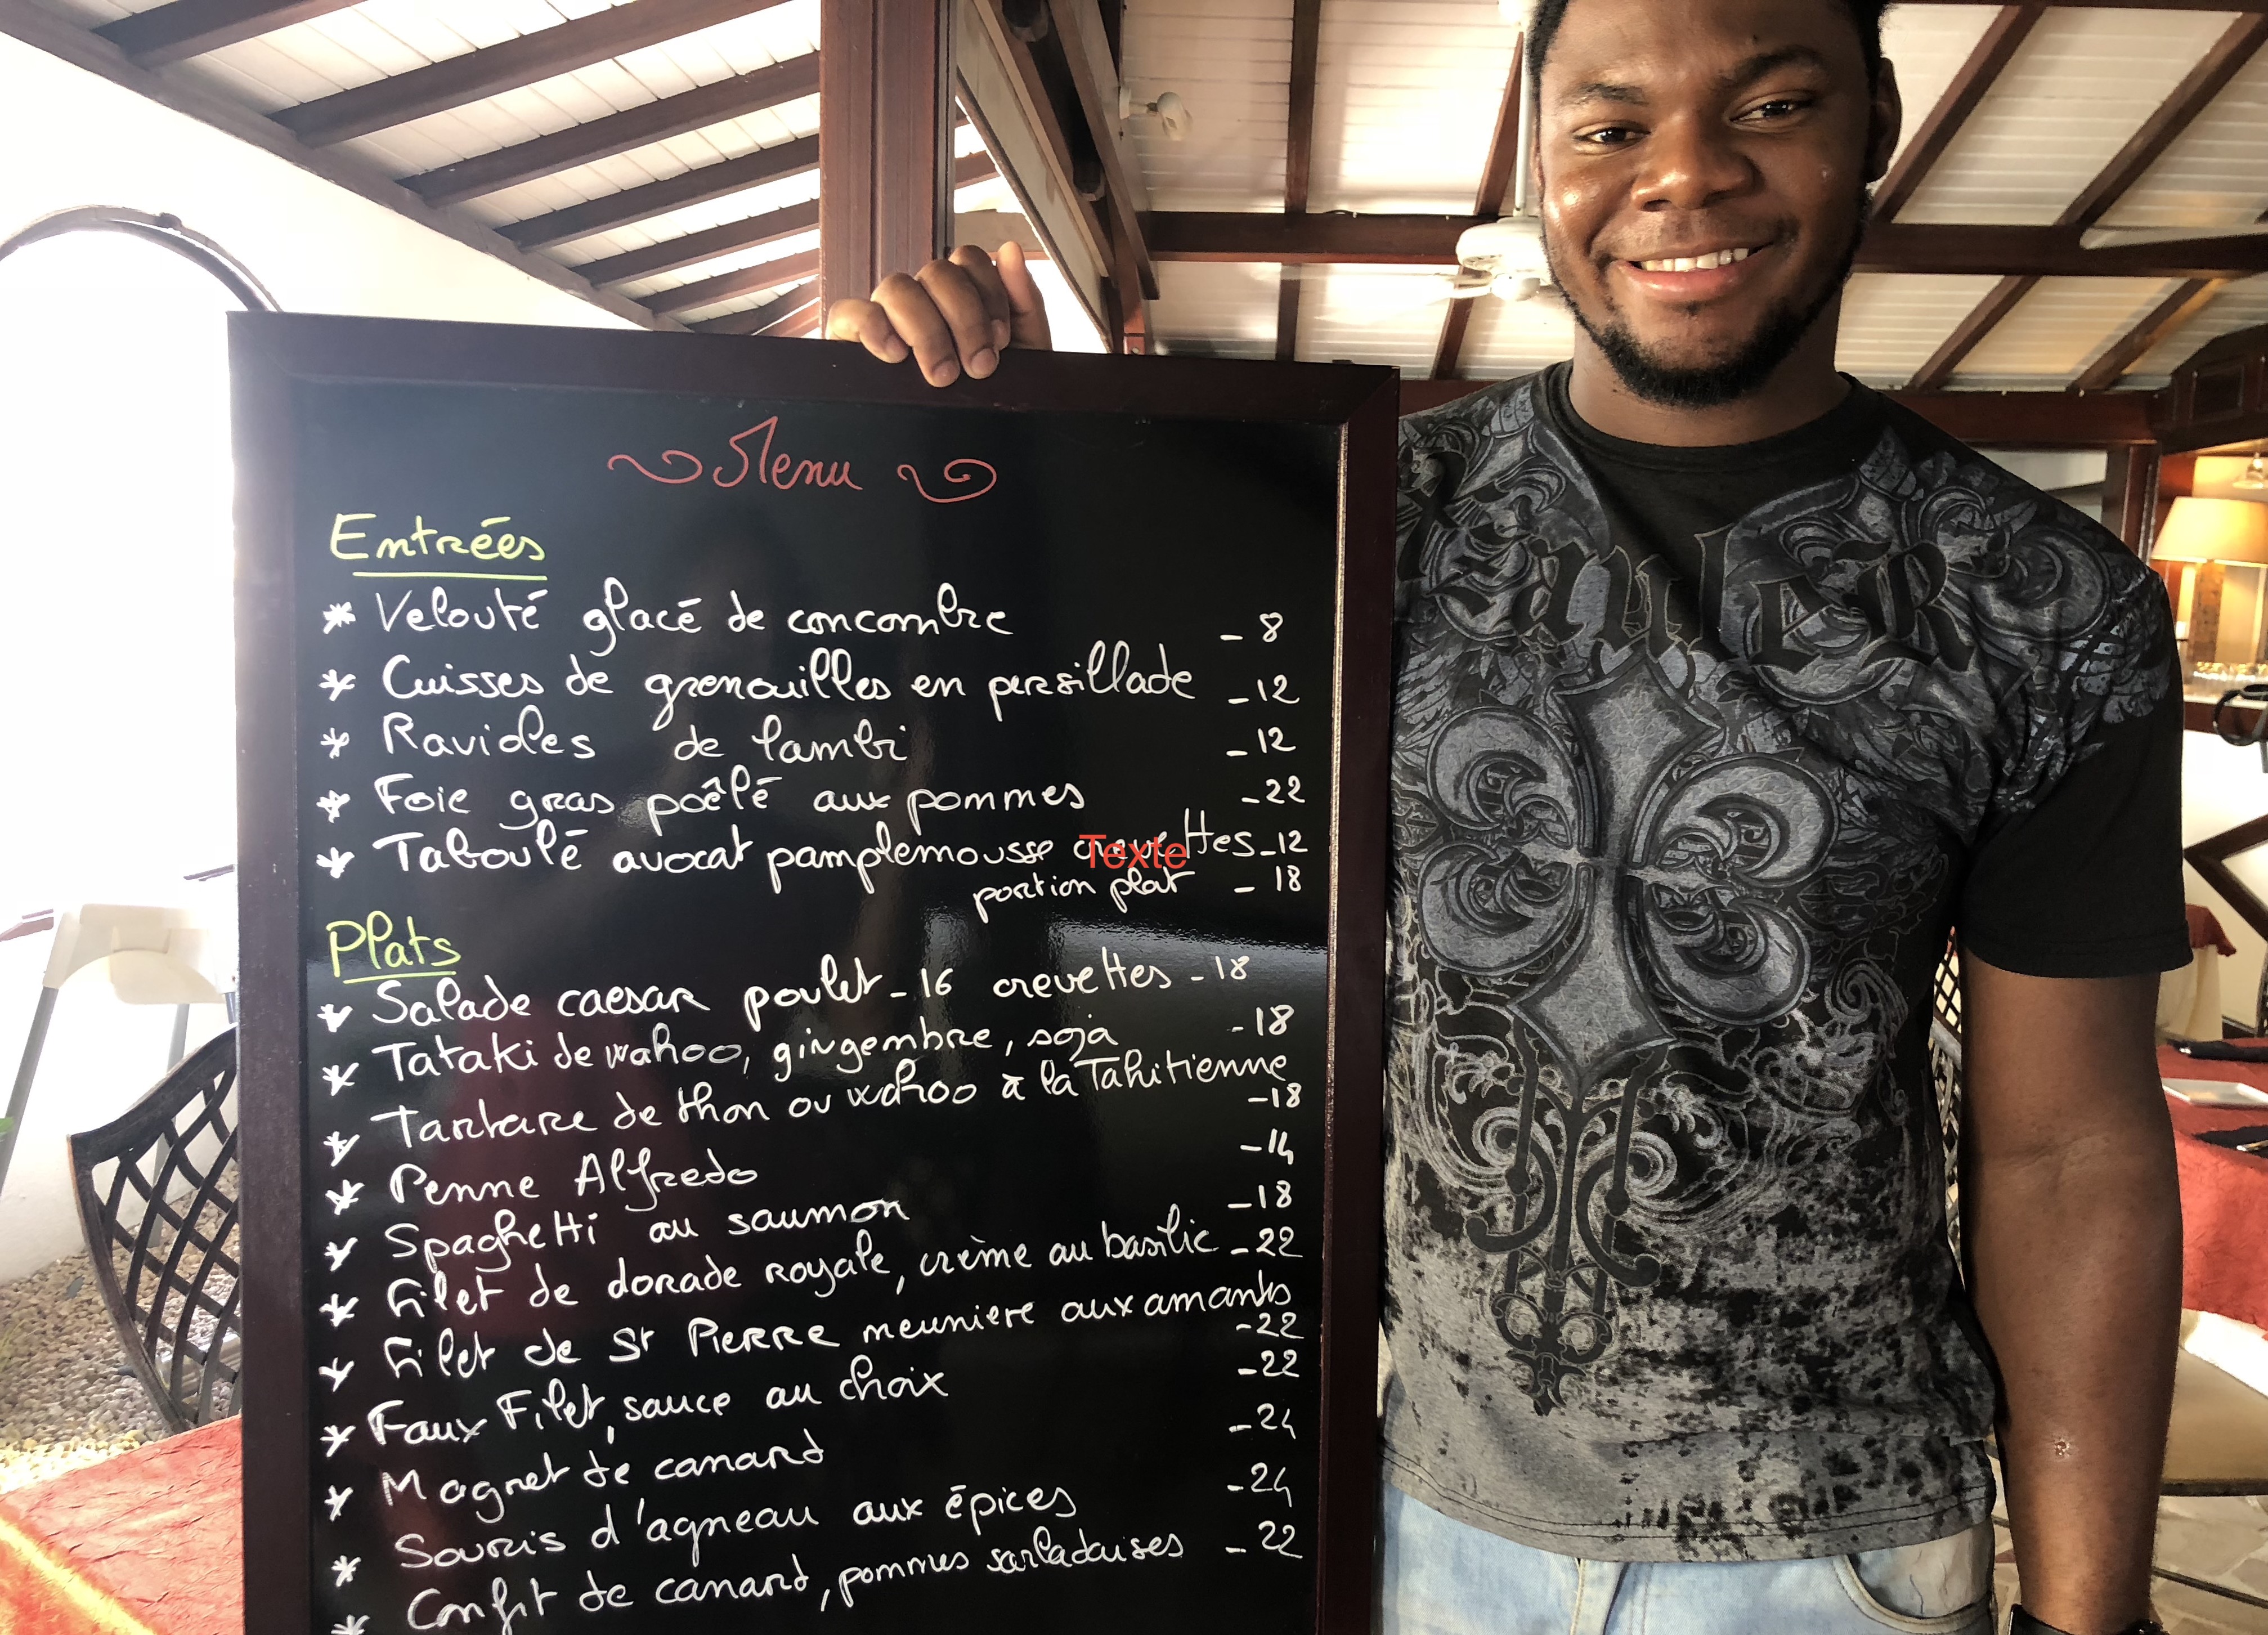 Menu
Entrées
* Velouté glacé de concombre - 8
* Cuisses de grenouilles en persillade - 12
* Ravioles de lambi - 12
* Foie gras poêlé aux pommes - 22
* Taboulé avocat pamplemousse crevettes - 12
Texte
portion plat - 18
Plats
* Salade caesar poulet - 16 crevettes - 18
* Tataki de wahoo, gingembre, soja - 18
* Tartare de thon ou wahoo à la Tahitienne
- 18
* Penne Alfredo - 14
* Spaghetti au saumon - 18
* Filet de dorade royale, crème au basilic - 22
* Filet de St Pierre meuniere aux amants
- 22
* Faux Filet, sauce au choix - 22
* Magret de canard - 24
* Souris d'agneau aux épices - 24
* Confit de canard, pommes sarladaises - 22